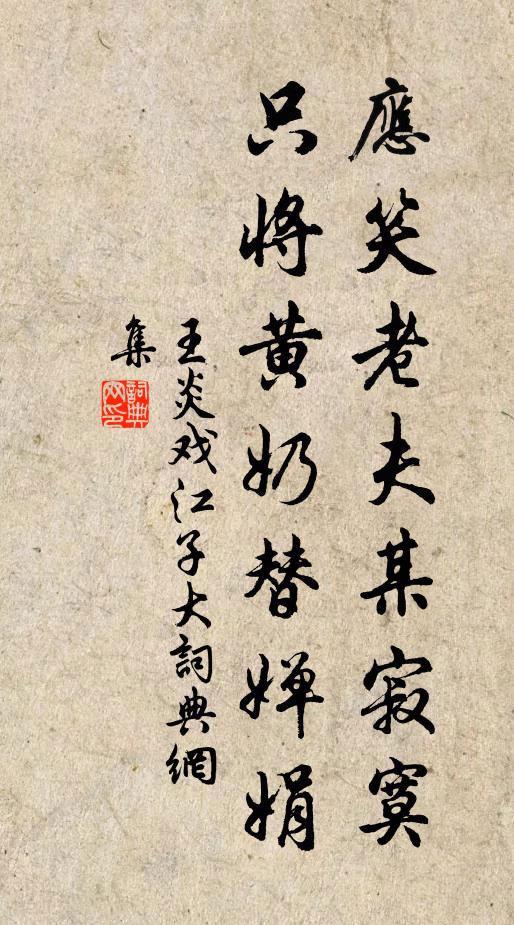 應笑老夫某寂寞
只將黄奶替婵娟
王炎戏江子大詞典網
集
詞典
网印